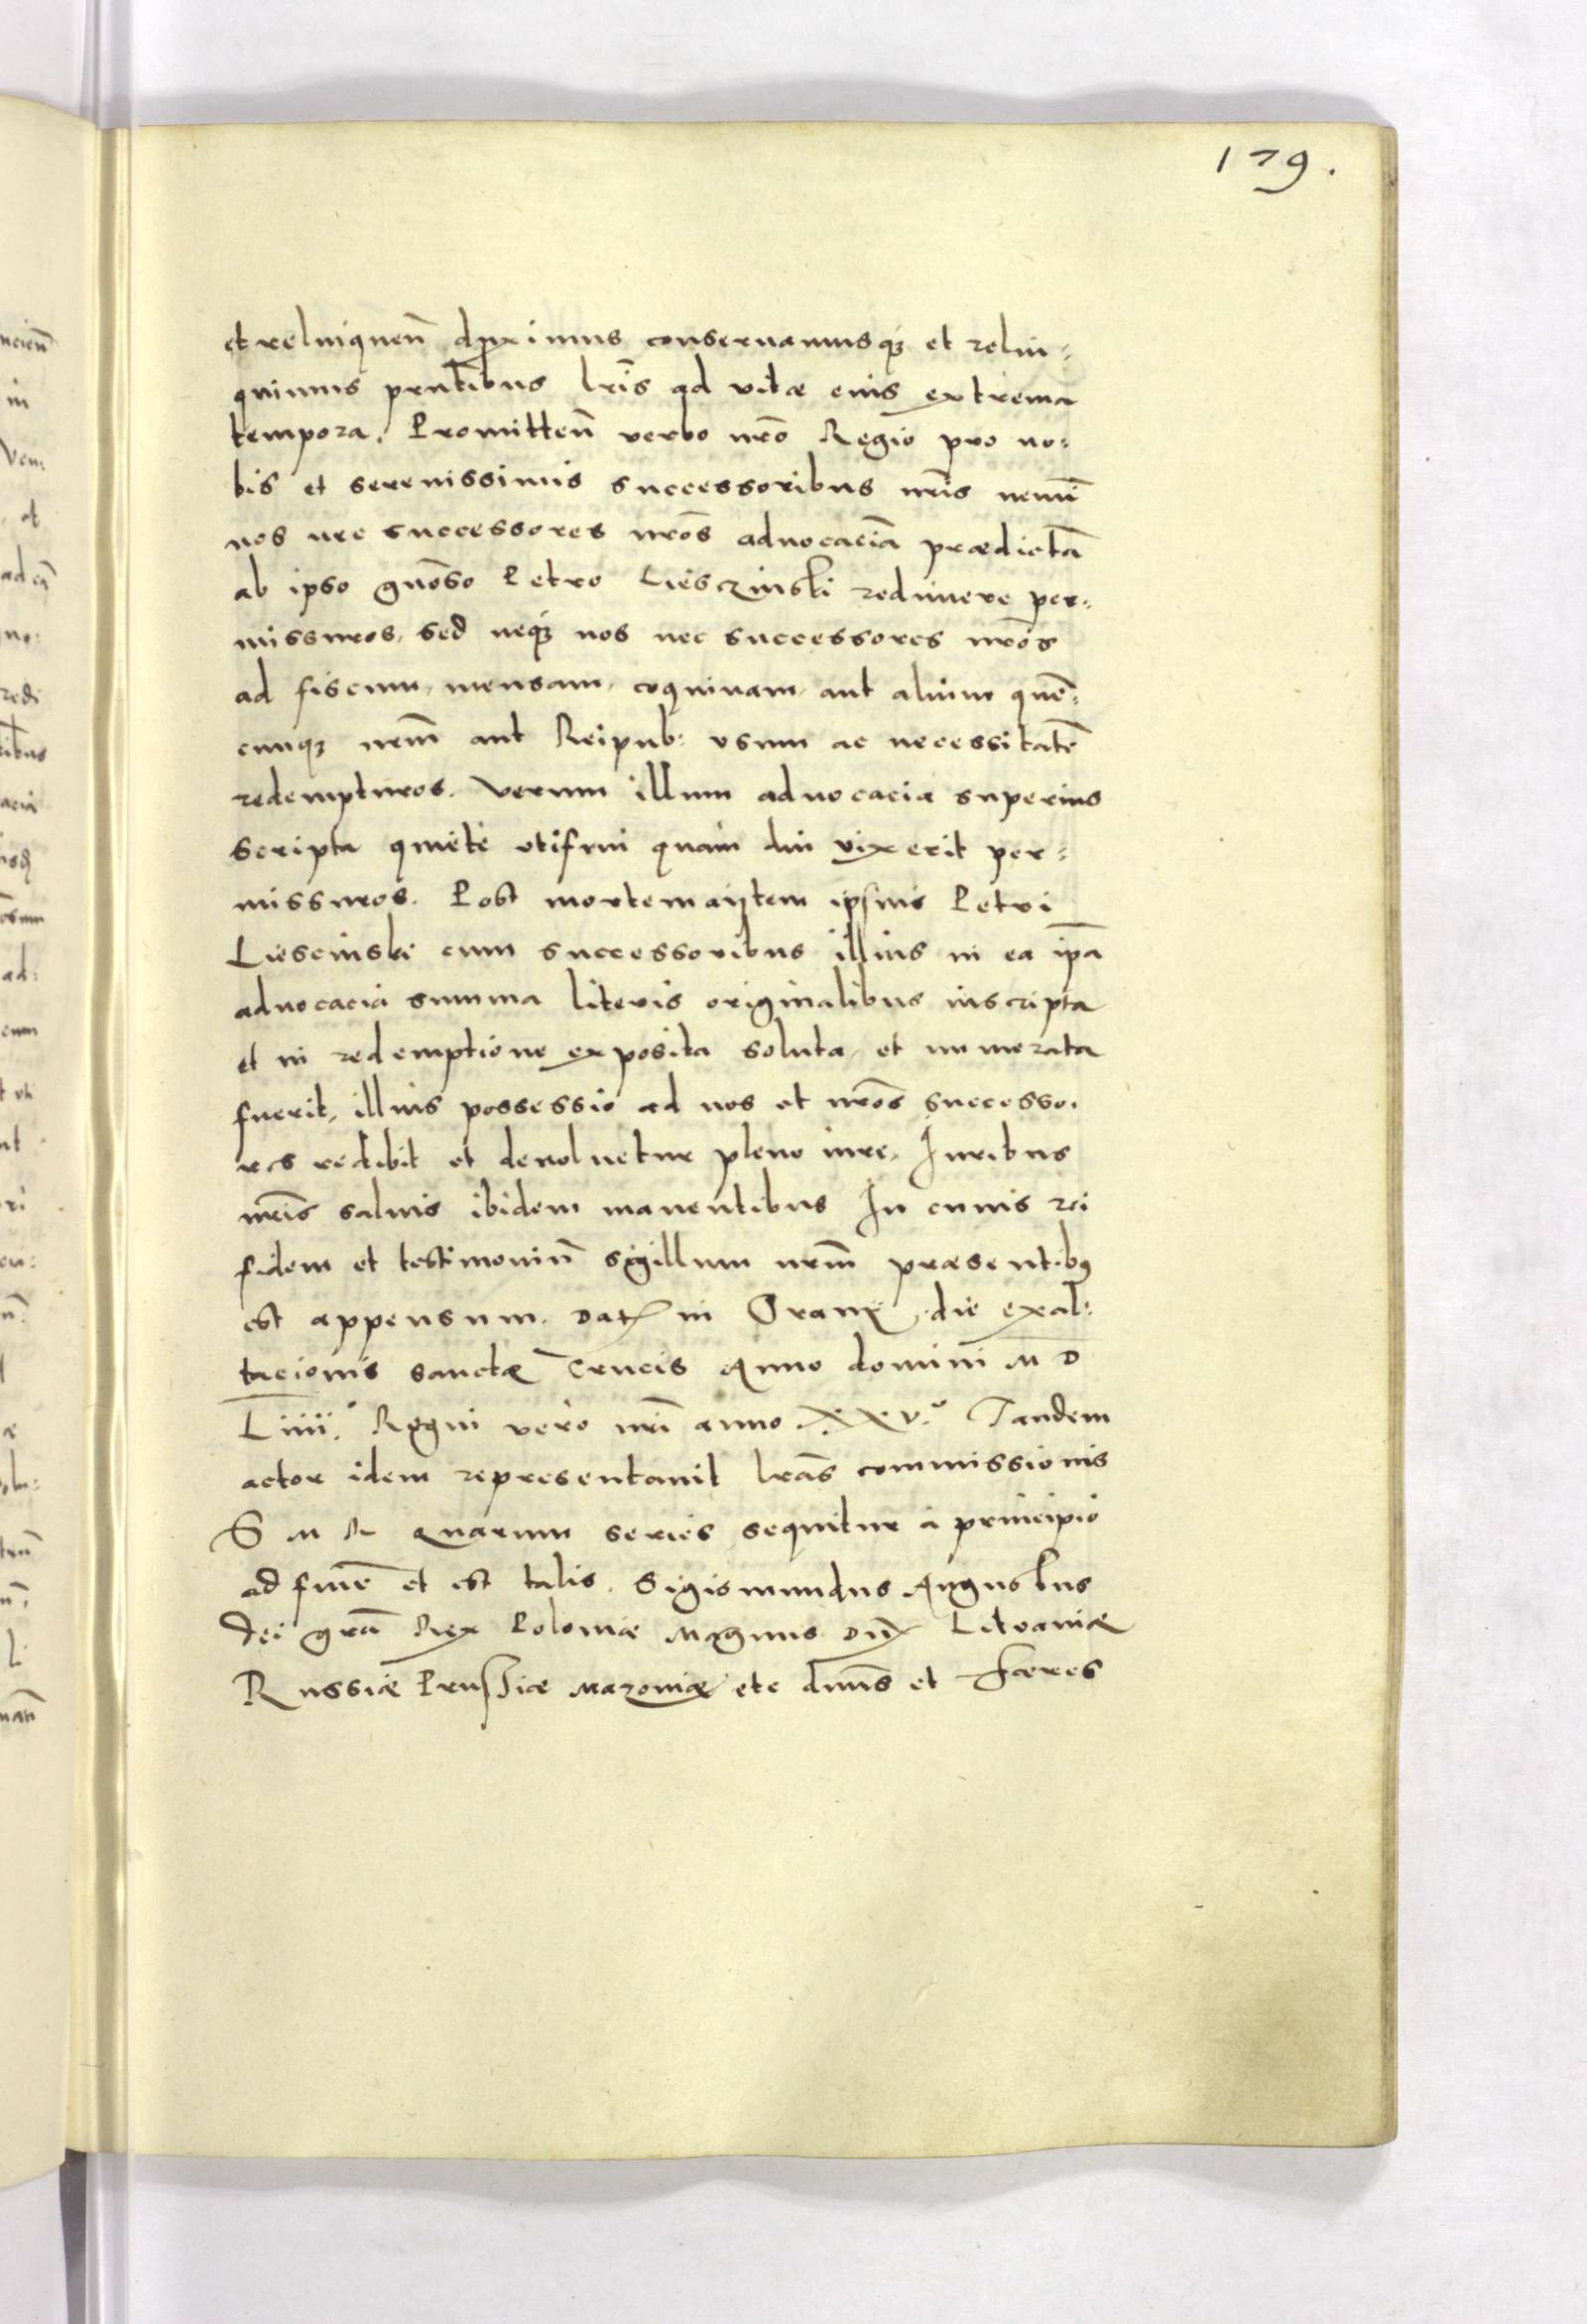 179.
et relinquen̄ dūximus conseruamusqꝫ et relin⸗
quimus pn̄tibus lr̄is ad vitæ eius extrema
tempora. Promitten̄ verbo nr̄o Regio pro no⸗
bis et serenissimis successoribus nr̄is nemī
nos nec successores nr̄os aduocaciā prædictā
ab ipso gn̄oso Petro Liesczinski redimere per⸗
missuros, sed neqꝫ nos nec successores nr̄os
ad fiscum, mensam, coquinam, aut alium quē⸗
cunqꝫ nr̄m aut Reipub: vsum ac necessitatē
redempturos. Verum illum aduocacia superius
scripta quiete vtifrui quam diu vixerit per⸗
missuros. Post mortem aūtem ipsius Petri
Liescinski cum successoribus illius in ea ip̄a
aduocacia summa literis originalibus inscripta
et in redemptione exposita soluta, et numerata
fuerit, illius possessio ad nos et nr̄os successo⸗
res redibit et deuoluetur pleno iure, Iuribus
nr̄is saluis ibidem manentibus In cuius rei
fidem et testimoniū sigillum nr̄m præsentibꝰ
est appensum. Datꝭ in Oranÿ die exal⸗
tacionis sanctæ Crucis Anno domini M D
Liiii.° Regni vero nr̄i anno XXV.° Tandem
actor idem representauit lr̄as commissionis
S M R Quarum series sequitur a principio
ad finē et est talis. Sigismundus Augustus
Dei gr̄a Rex Poloniæ Magnus Dux Lituaniæ
Russiæ Prussiæ Mazouiæ etc dn̄us et Hæres
neien̄
in
Ven:
et
ad eā
no:
redi
ribus
ad:
cum
t vt
ri
en: